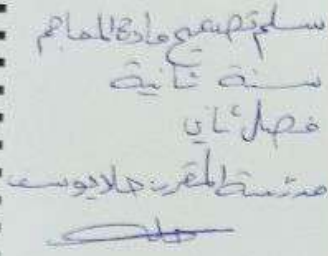 سلم تصحيح مادة المعاجم
سنة ثانية
فصل ثاني
مدرسة المقرر: حلا يوسف